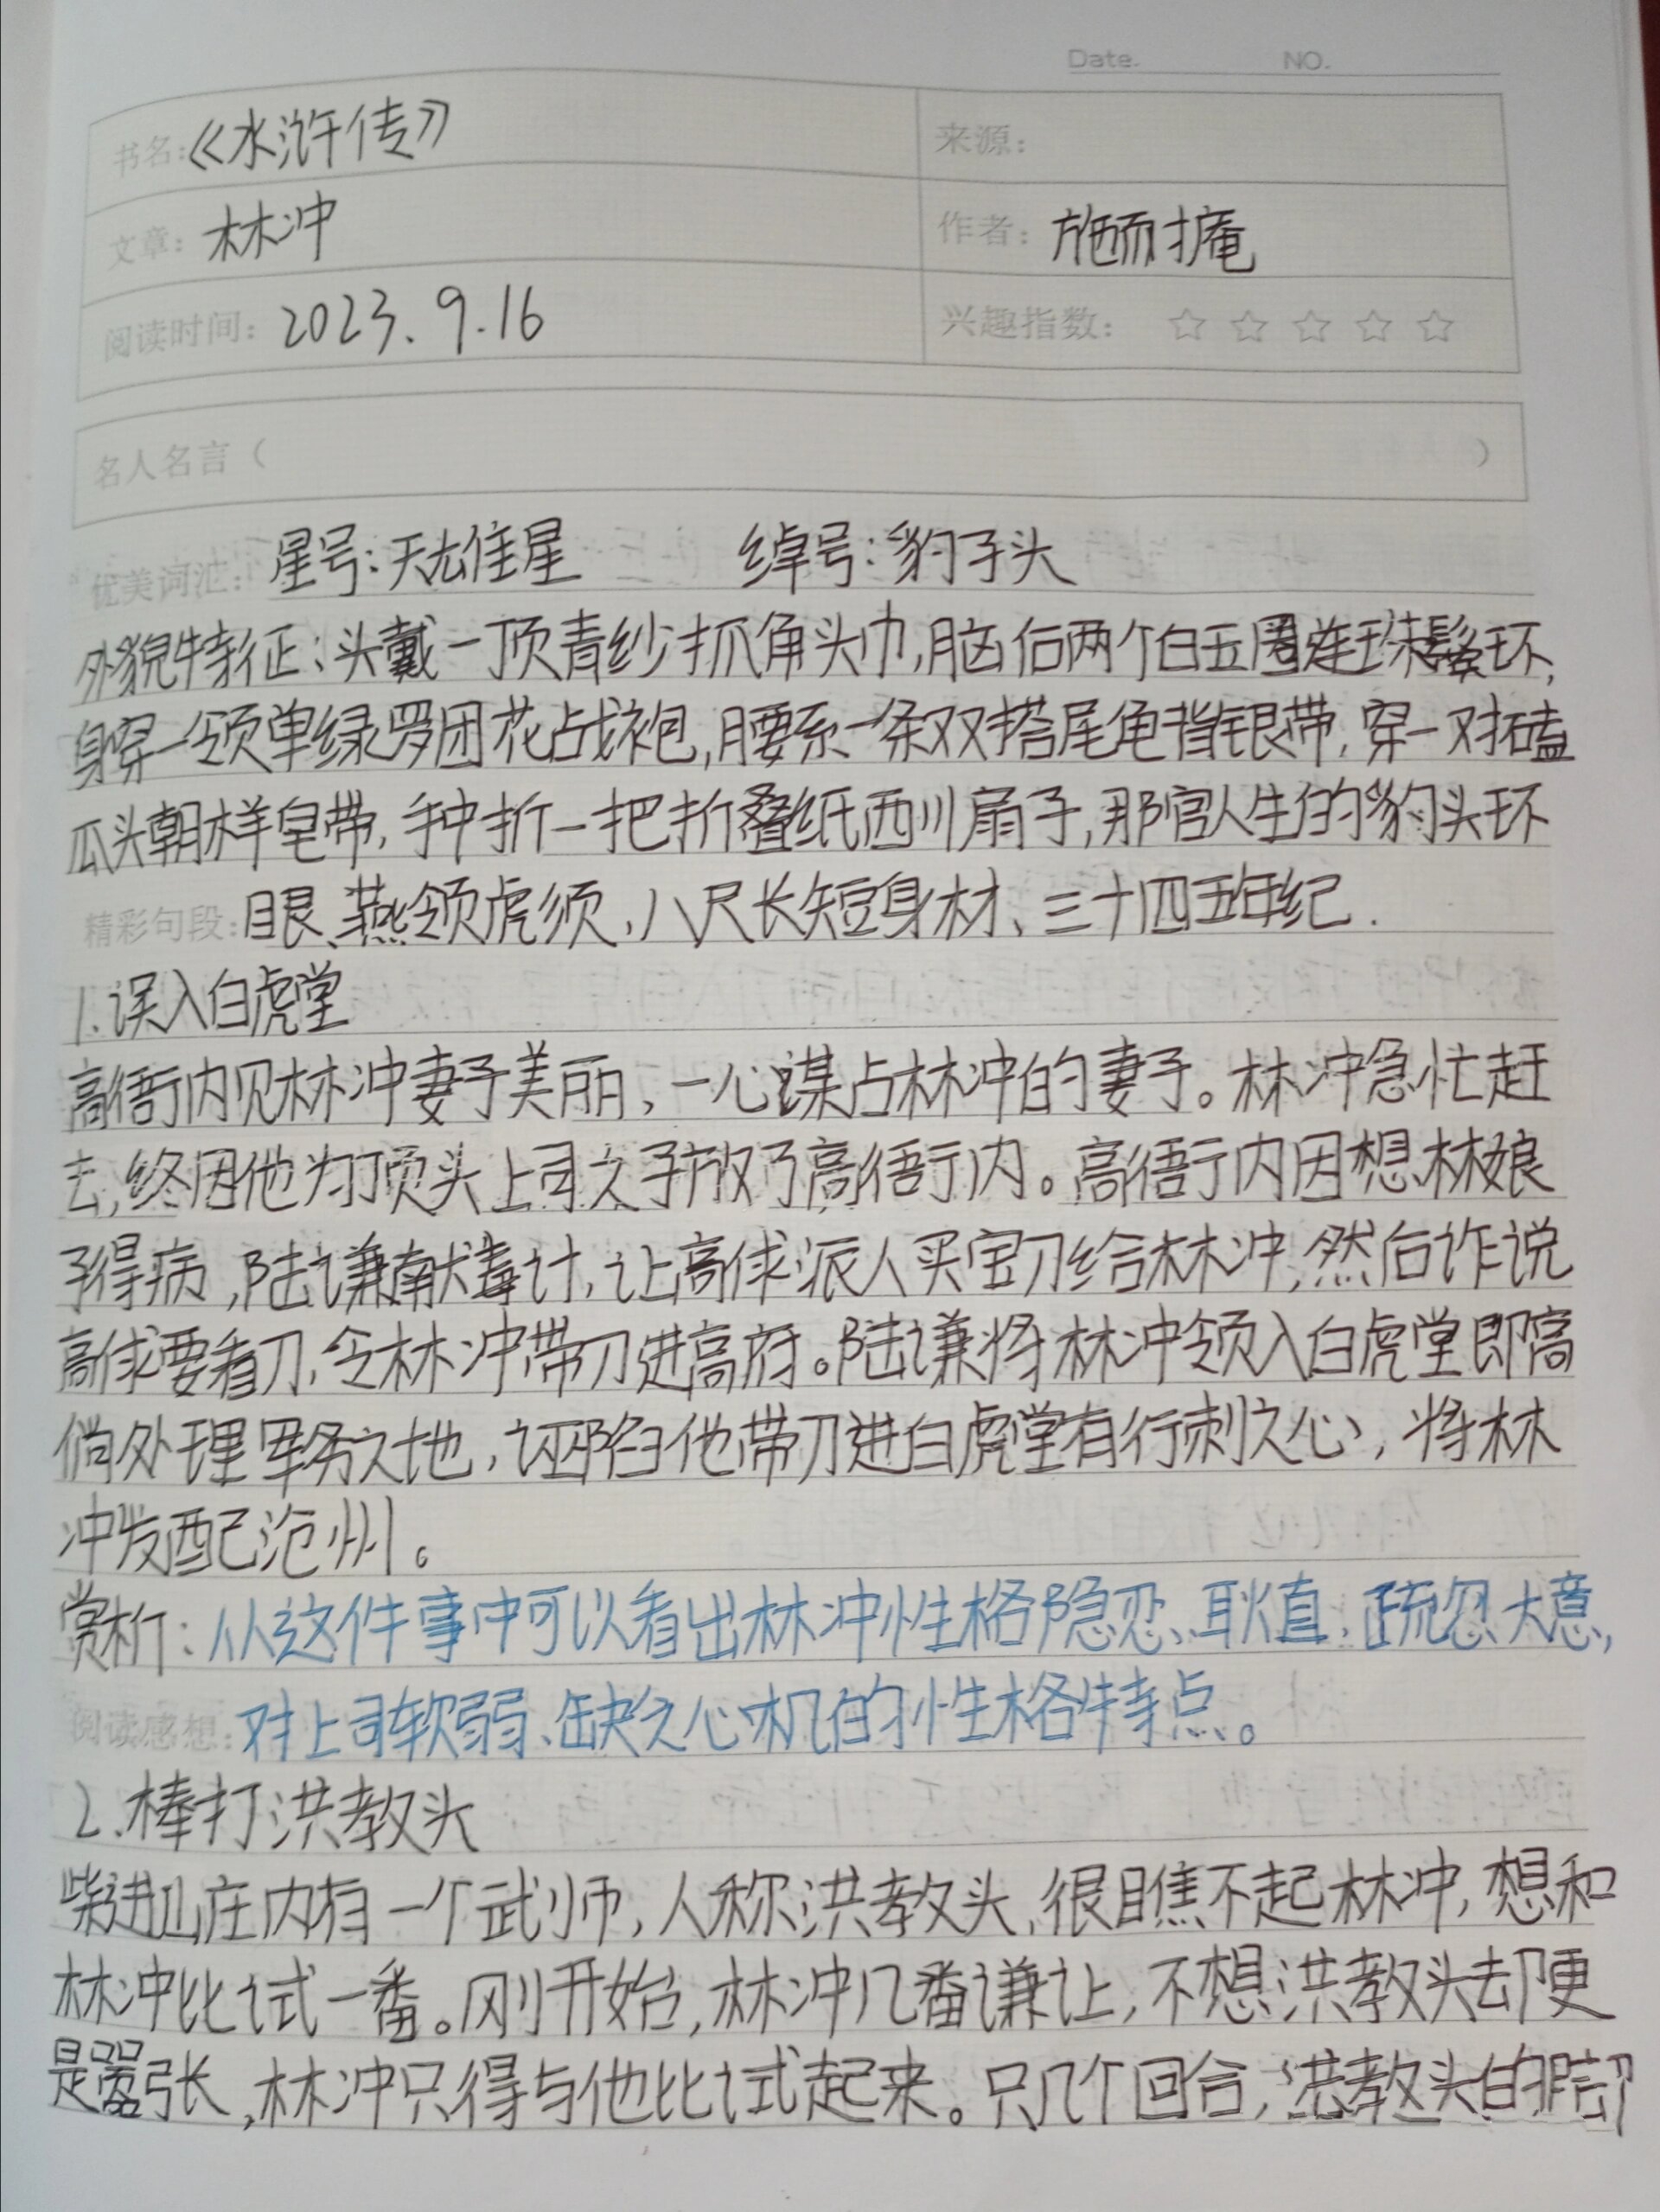 Date.    NO.
书名:《水浒传》    来源:
文章: 林冲    作者: 施耐庵
阅读时间: 2023.9.16    兴趣指数: ☆ ☆ ☆ ☆ ☆
名人名言（    ）
优美词汇: 星号:天雄星    绰号:豹子头
外貌特征:头戴一顶青纱抓角头巾,脑后两个白玉圈连珠鬓环,
身穿一领单绿罗团花战袍,腰系一条双搭尾龟背银带,穿一对磕
瓜头朝样皂带,手中折一把折叠纸西川扇子,那官人生的豹头环
精彩句段: 眼、燕领虎须,八尺长短身材、三十四五年纪.
1.误入白虎堂
高衙内见林冲妻子美丽,一心谋占林冲的妻子。林冲急忙赶
去,终因他为顶头上司之子放了高衙内。高衙内因想林娘
子得病,陆谦献毒计,让高俅派人买宝刀给林冲,然后诈说
高俅要看刀,令林冲带刀进高府。陆谦将林冲领入白虎堂即高
俏处理军务之地,诬陷他带刀进白虎堂有行刺之心,将林
冲发配沧州。
赏析:从这件事中可以看出林冲性格隐忍、耿直,疏忽大意,
阅读感想: 对上司软弱、缺乏心机的性格特点。
2.棒打洪教头
柴进山庄内有一个武师,人称洪教头,很瞧不起林冲,想和
林冲比试一番。刚开始,林冲几番谦让,不想洪教头却更
是嚣张,林冲只得与他比试起来。只几个回合,洪教头的脚